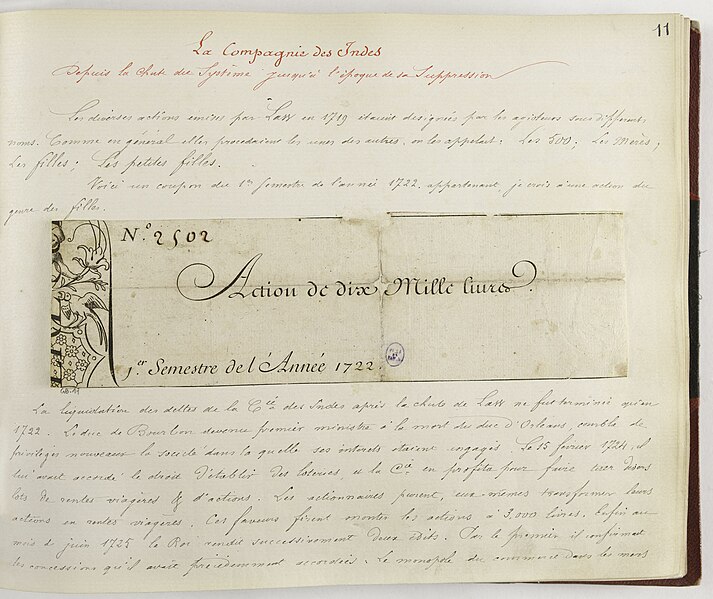 11
La Compagnie des Indes
Depuis la chute du Système jusqu'à l'époque de sa Suppression
Les diverses actions émises par Law en 1719 étaient désignées par les agioteurs sous différents
noms. Comme en général elles procédaient les unes des autres, on les appelait: Les 500; Les Mères;
Les filles; Les petites filles.
Voici un coupon du 1er Semestre de l'année 1722, appartenant, je crois à une action du
genre des filles.
N.º 2502
Action de dix Mille livres.
1.er Semestre de l'Année 1722.
La liquidation des dettes de la Cie des Indes après la chute de Law ne fut terminée qu'en
1722. Le duc de Bourbon devenu premier ministre à la mort du duc d'Orléans, combla de
privilèges nouveaux la société dans laquelle ses intérêts étaient engagés. Le 15 février 1724, il
lui avait accordé le droit d'établir des loteries, et la Cie en profita pour faire tirer divers
lots de rentes viagères & d'actions. Les actionnaires purent, eux-mêmes transformer leurs
actions en rentes viagères. Ces faveurs firent monter les actions à 3,000 livres. Enfin au
mois de juin 1725 le Roi rendit successivement deux édits. Par le premier il confirmait
les concessions qu'il avait précédemment accordées. Le monopole du commerce dans les mers